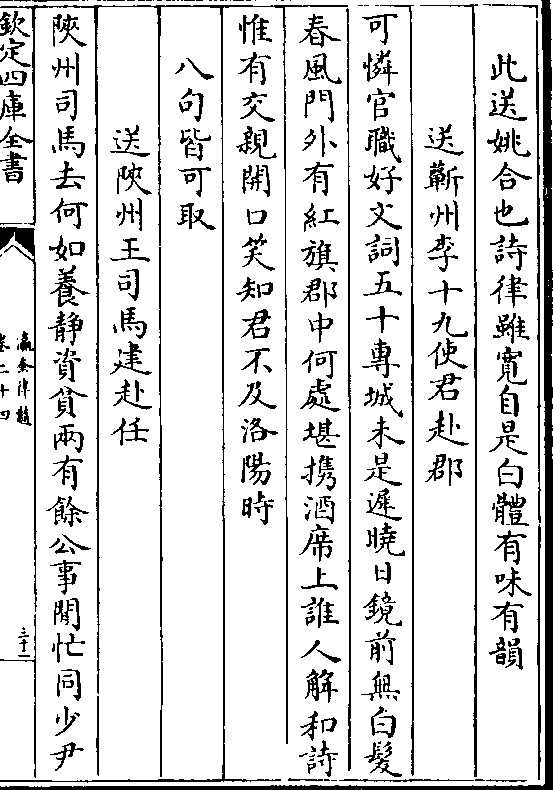 此送姚合也詩律雖寛自是白體有味有韻
送蘄州李十九使君赴郡
可憐官職好文詞五十專城未是遲曉日鏡前無白髮
春風門外有紅旗郡中何處堪携酒席上誰人解和詩
惟有交親開口笑知君不及洛陽時
八句皆可取
送陜州王司馬建赴任
陜州司馬去何如養靜資貧兩有餘公事閒忙同少尹
欽定四庫全書
瀛奎律髓
卷二十四
三十一